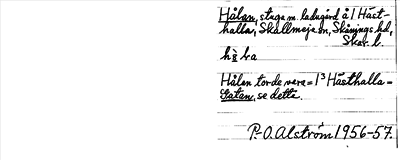 Hålan, stuga m. ladugård å 1 Häst-
halla, Skallmeja sn, Skånings hd,
Skar. l.
Hålan torde vara = 1³ Hästhalla =
Gatan, se detta.
P.-O. Alström 1956-57.